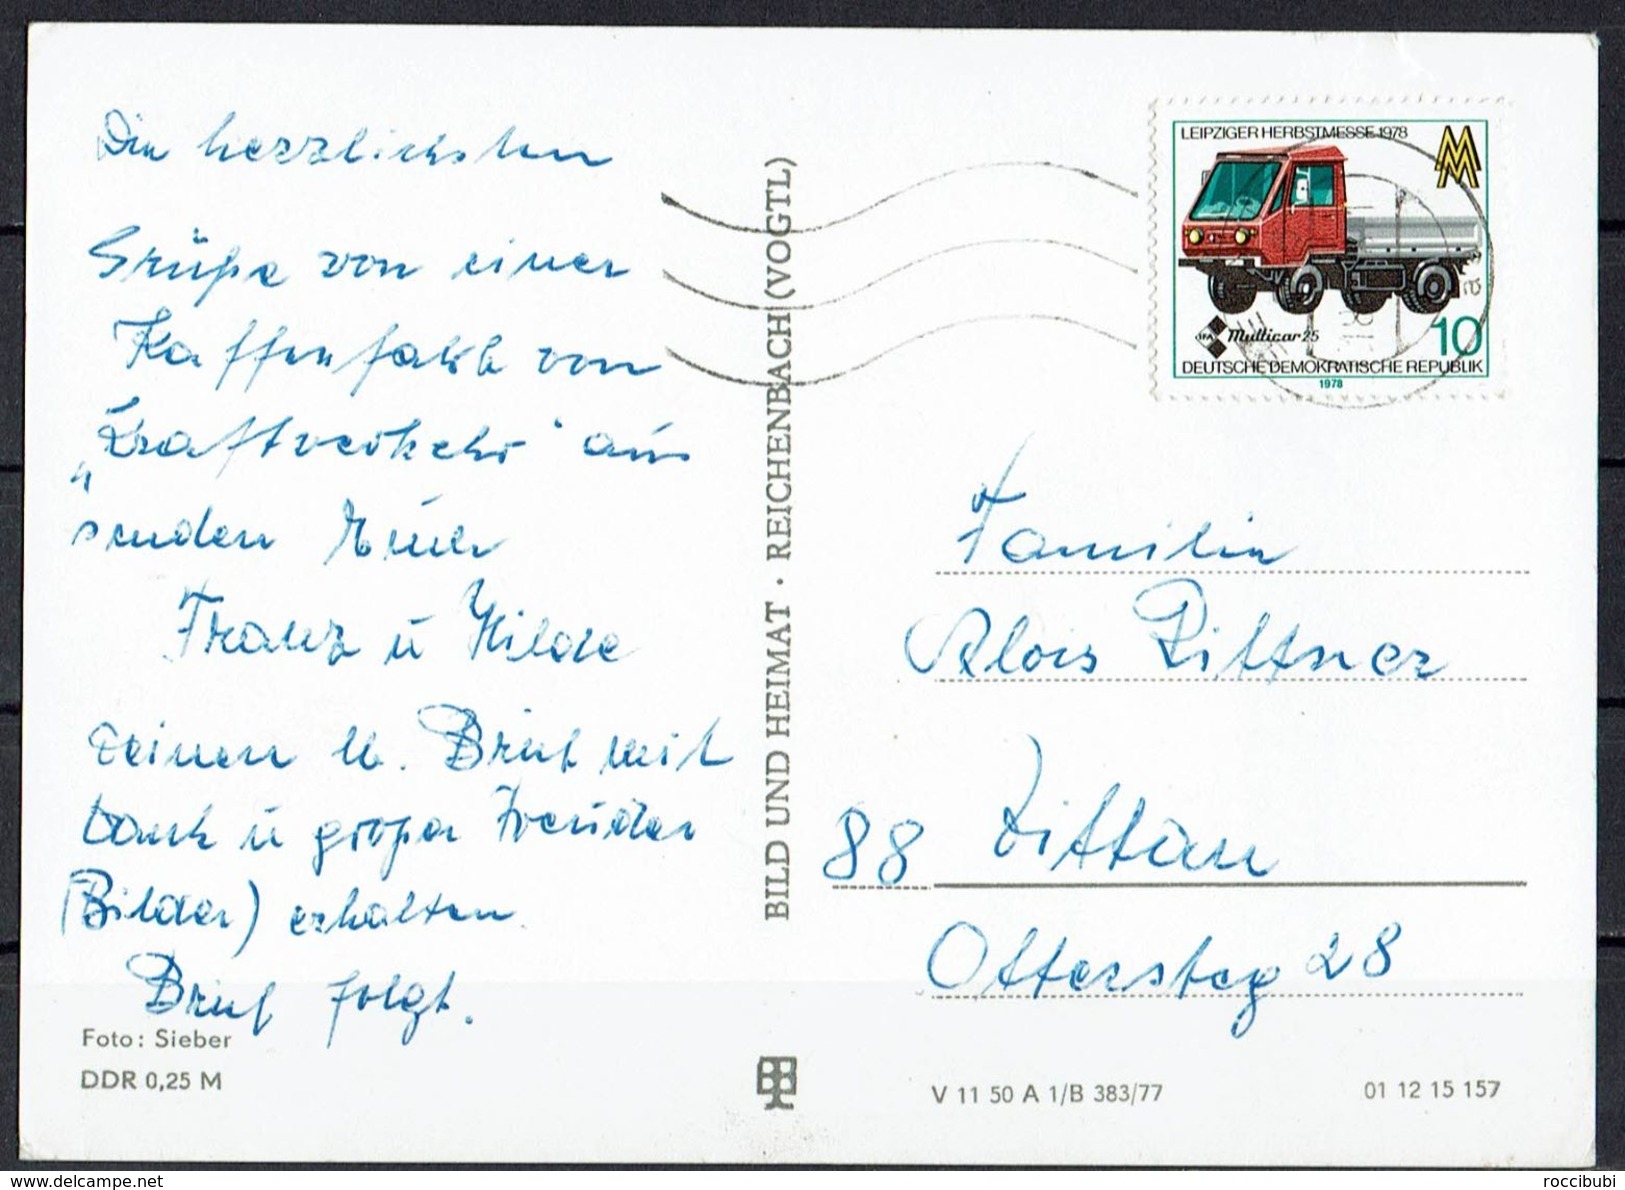 Die herzlichsten
Grüße von einer
Kaffeefahrt von
„Kraftverkehr“ aus
senden Euch
Franz u Hilde
Deinen lb. Brief mit
Dank u großer Freude
(Bilder) erhalten.
Brief folgt.
Foto: Sieber
DDR 0,25 M
BILD UND HEIMAT · REICHENBACH (VOGTL)
LEIPZIGER HERBSTMESSE 1978
MM
IFA Multicar 25
10
DEUTSCHE DEMOKRATISCHE REPUBLIK
1978
Familie
Alois Rittner
88 Zittau
Ottersteg 28
V 11 50 A 1/B 383/77
01 12 15 157
roccibubi
delcampe.net